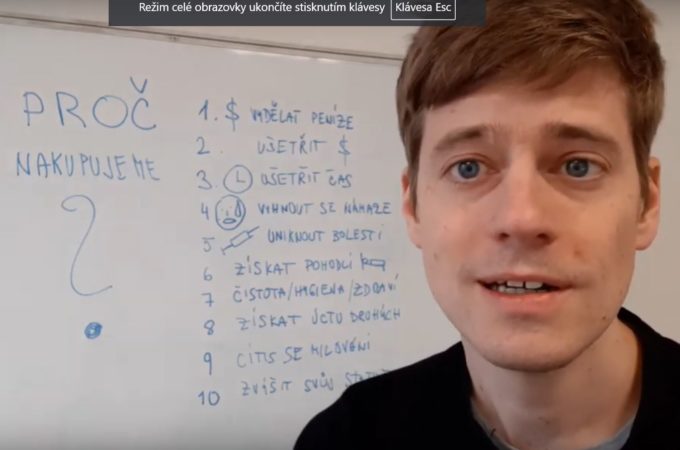 Režim celé obrazovky ukončíte stisknutím klávesy Klávesa Esc
PROČ
NAKUPUJEME
?
1. $ VYDĚLAT PENÍZE
2. UŠETŘIT $
3. UŠETŘIT ČAS
4 VYHNOUT SE NÁMAZE
5 UNIKNOUT BOLESTI
6 ZÍSKAT POHODLÍ
7 ČISTOTA/HYGIENA/ZDRAVÍ
8 ZÍSKAT ÚCTU DRUHÝCH
9 CÍTIS SE MILOVÁNÍ
10 ZVÝŠIT SVŮJ